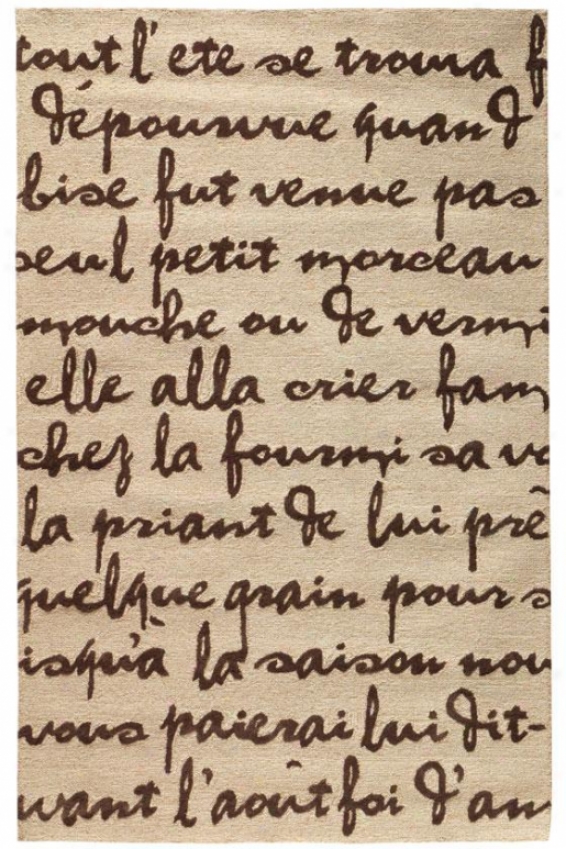 tout l'ete se trouva f
dépourvue quand
bise fut venue pas
seul petit morceau
mouche ou de vermi
elle alla crier fam
chez la fourmi sa vo
la priant de lui prê
quelque grain pour s
isqu'à la saison nou
vous paierai lui dit-
avant l'août foi d'an